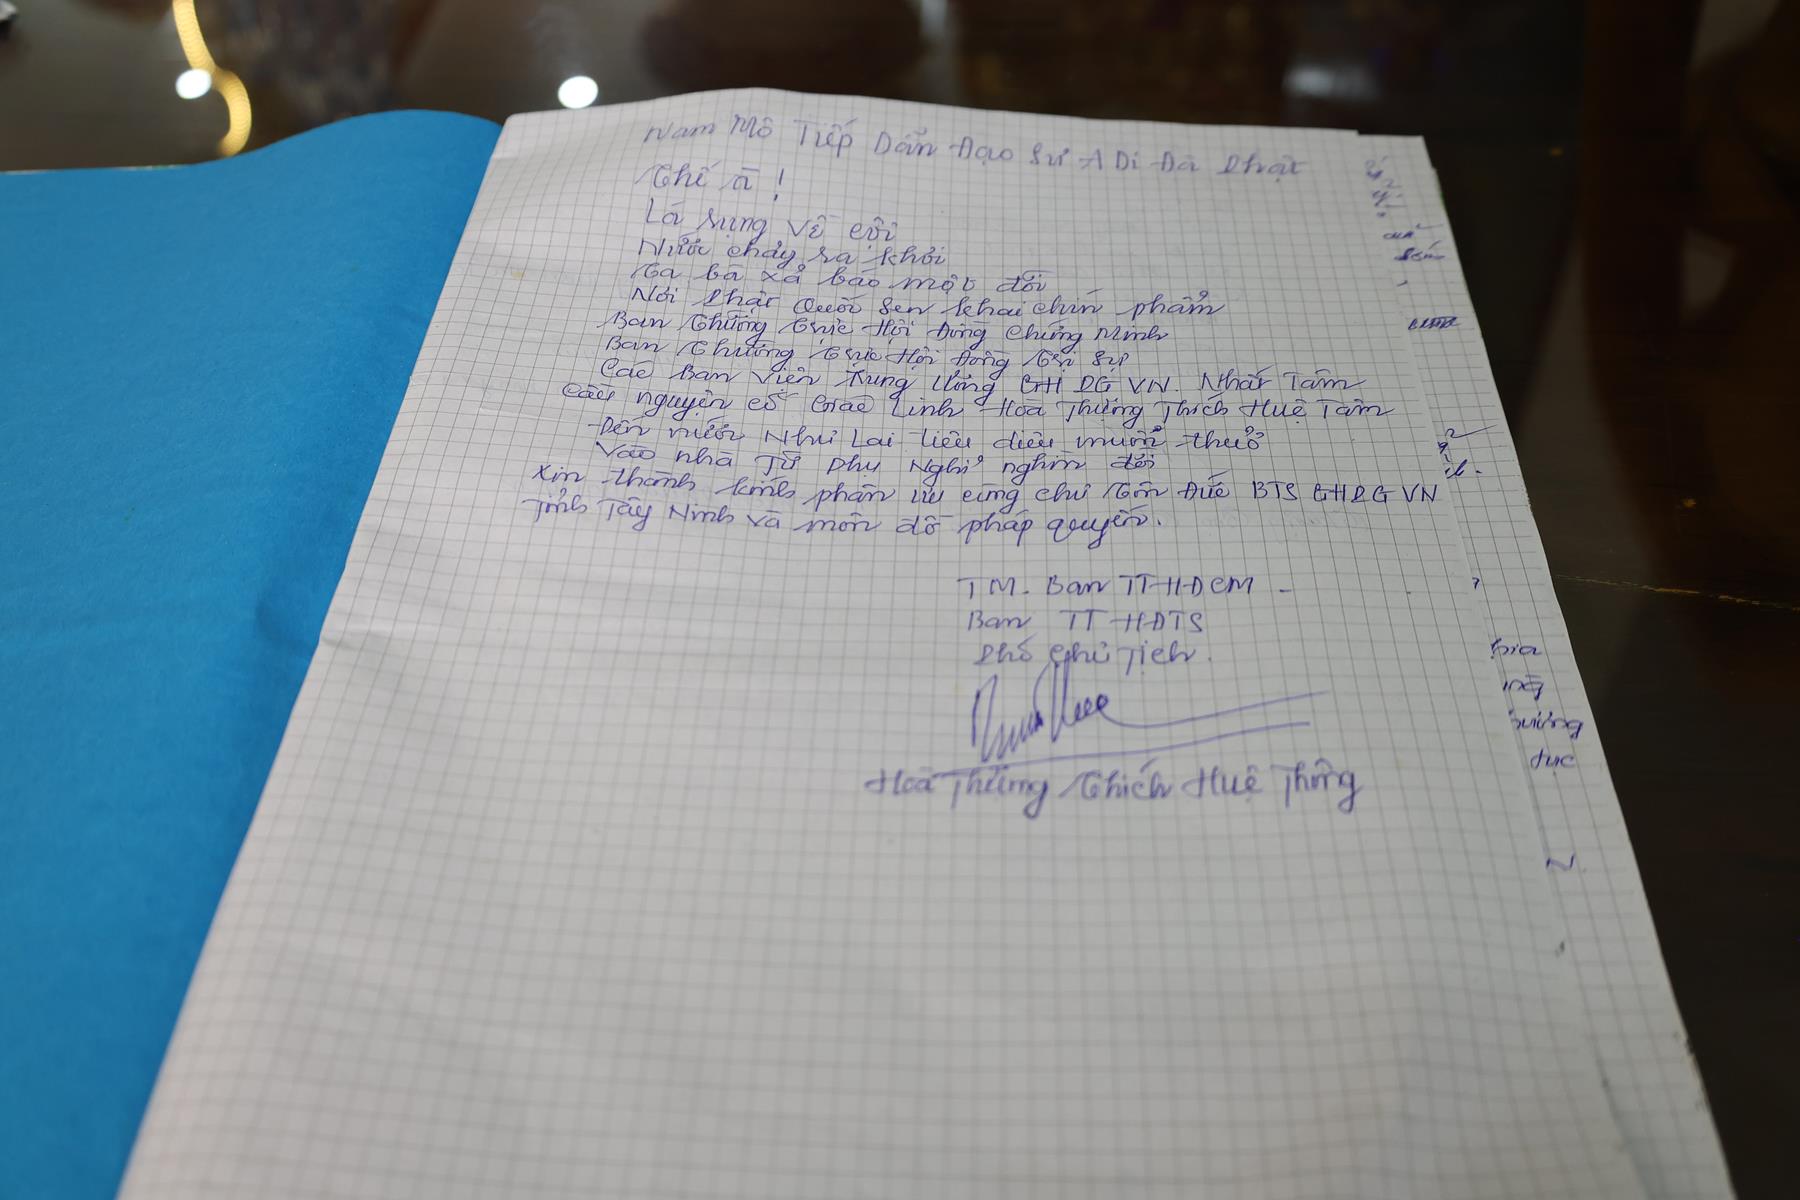 Nam Mô Tiếp Dẫn Đạo Sư A Di Đà Phật
Thế à !
Lá rụng về cội
Nước chảy ra khơi
Ta bà xả báo một đời
Nơi Phật Quốc sen khai chín phẩm
Ban Thường trực Hội Đồng Chứng Minh
Ban Thường trực Hội Đồng Trị Sự
Các Ban Viện Trung Ương GHPGVN. Nhất Tâm
Cầu nguyện cố Giác Linh Hoà Thượng Thích Huệ Tâm
Đến nước Như Lai tiêu diêu muôn thuở
Vào nhà Từ Phụ Nghỉ nghìn đời
Xin thành kính phân ưu cùng chư tôn đức BTS GHPGVN
Tỉnh Tây Ninh và môn đồ pháp quyến.
TM. Ban TT HĐCM -
Ban TT HĐTS
Phó Chủ Tịch.
Hoà Thượng Thích Huệ Thông